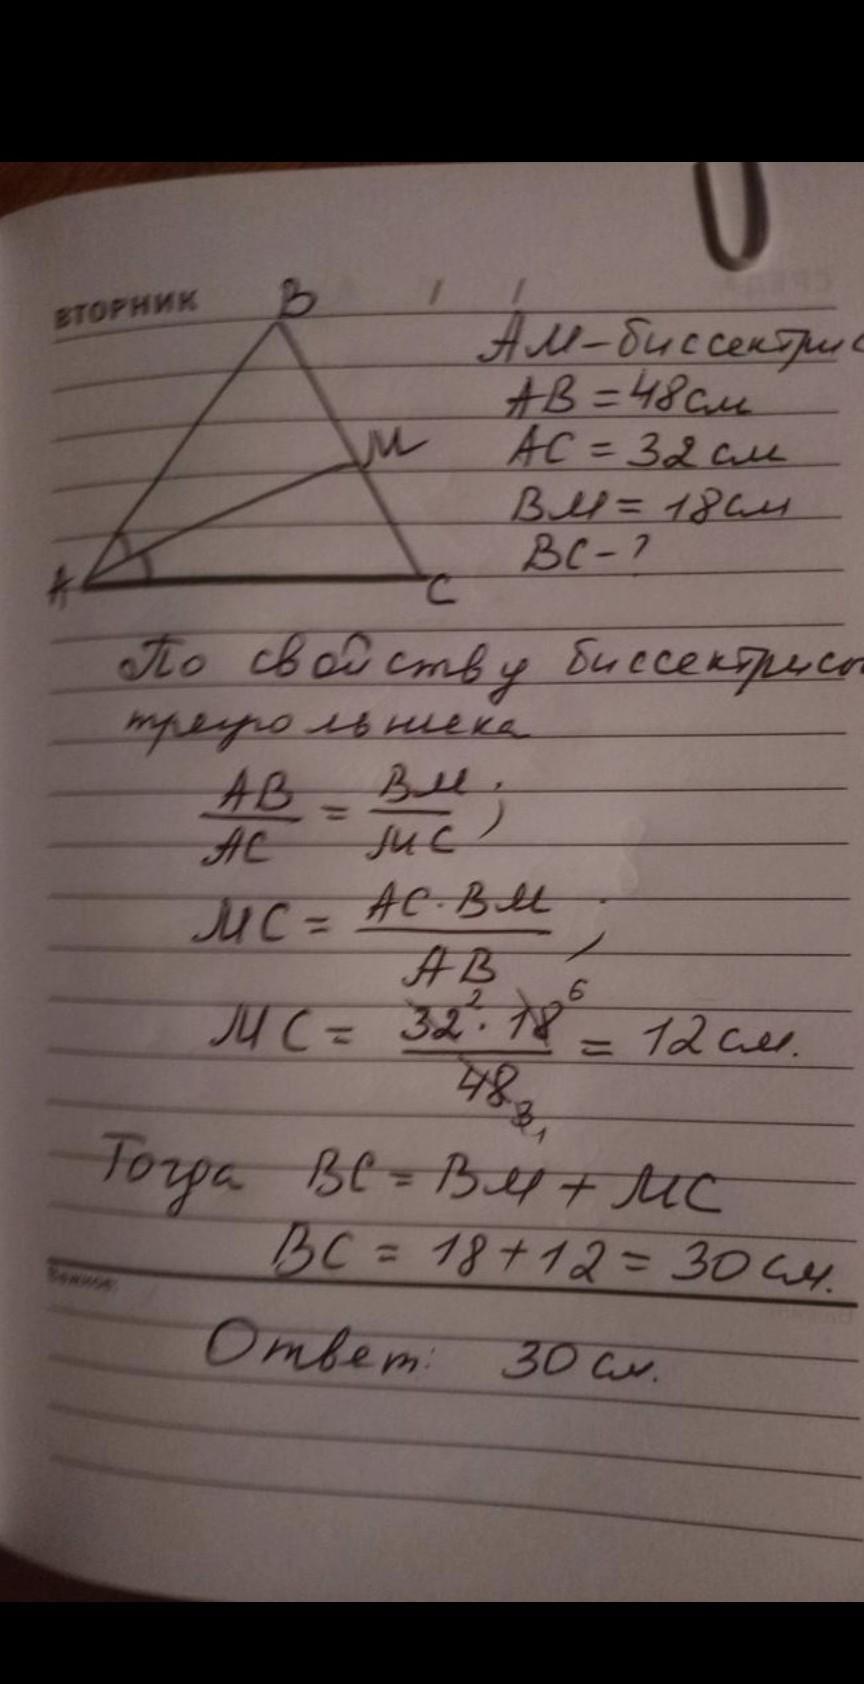 ВТОРНИК
B
M
A
C
AM - биссектрис
AB = 48 см
AC = 32 см
BM = 18 см
BC - ?
По свойству биссектрисы
треугольника
AB/AC = BM/MC ;
MC = AC · BM / AB ;
MC = 32² · 18⁶ / 48 3 1 = 12 см.
Тогда BC = BM + MC
BC = 18 + 12 = 30 см.
Ответ: 30 см.